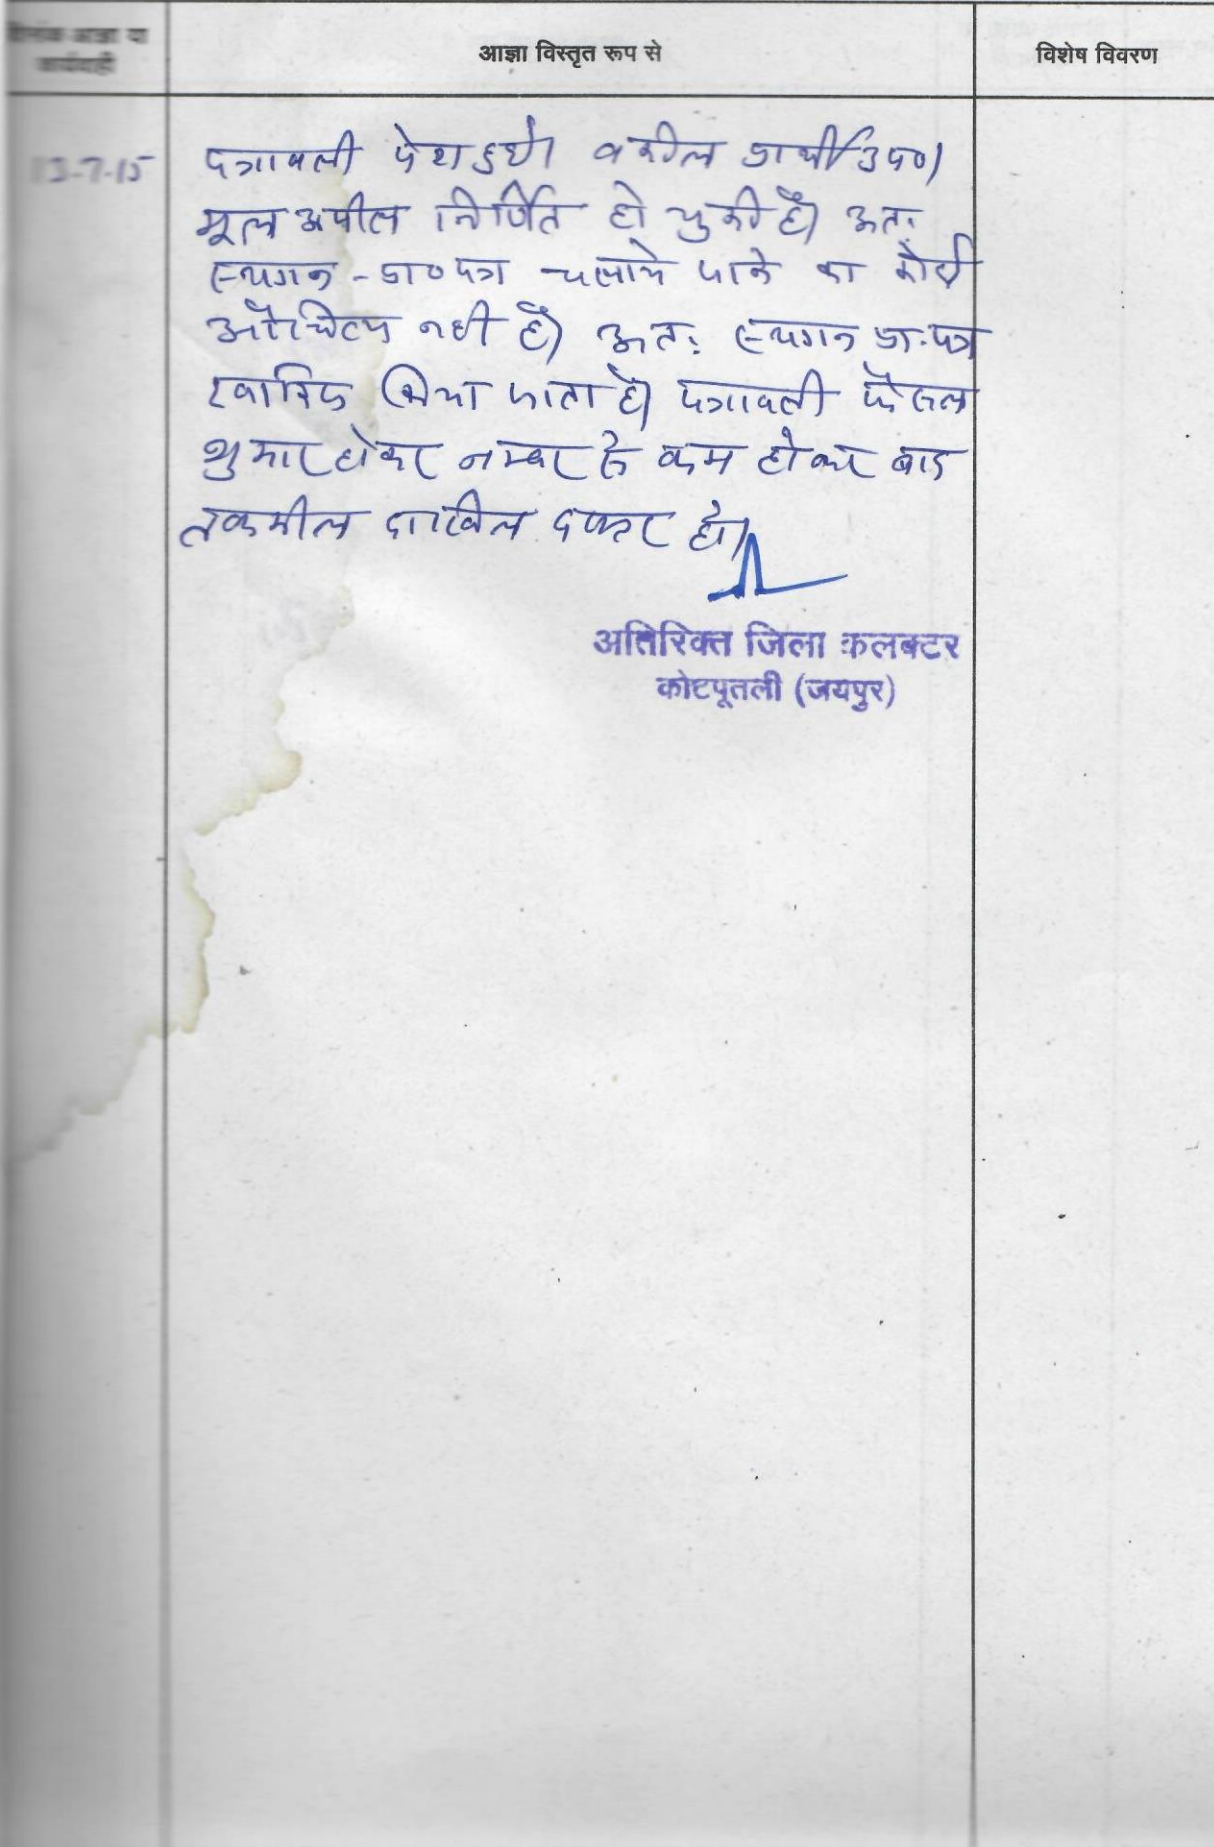 दिनांक आज्ञा या
कार्यवाही
आज्ञा विस्तृत रूप से
विशेष विवरण
13-7-15
पत्रावली पेश हुयी। वकील प्रार्थी उप०।
मूल अपील निर्णित हो चुकी है। अतः
स्थगन - प्रा० पत्र चलाये जाने का कोई
औचित्य नहीं है। अतः स्थगन प्रा. पत्र
खारिज किया जाता है। पत्रावली फैसल
शुमार होकर नम्बर से कम होकर बाद
तकमील दाखिल दफ्तर हो।
अतिरिक्त जिला कलक्टर
कोटपूतली (जयपुर)